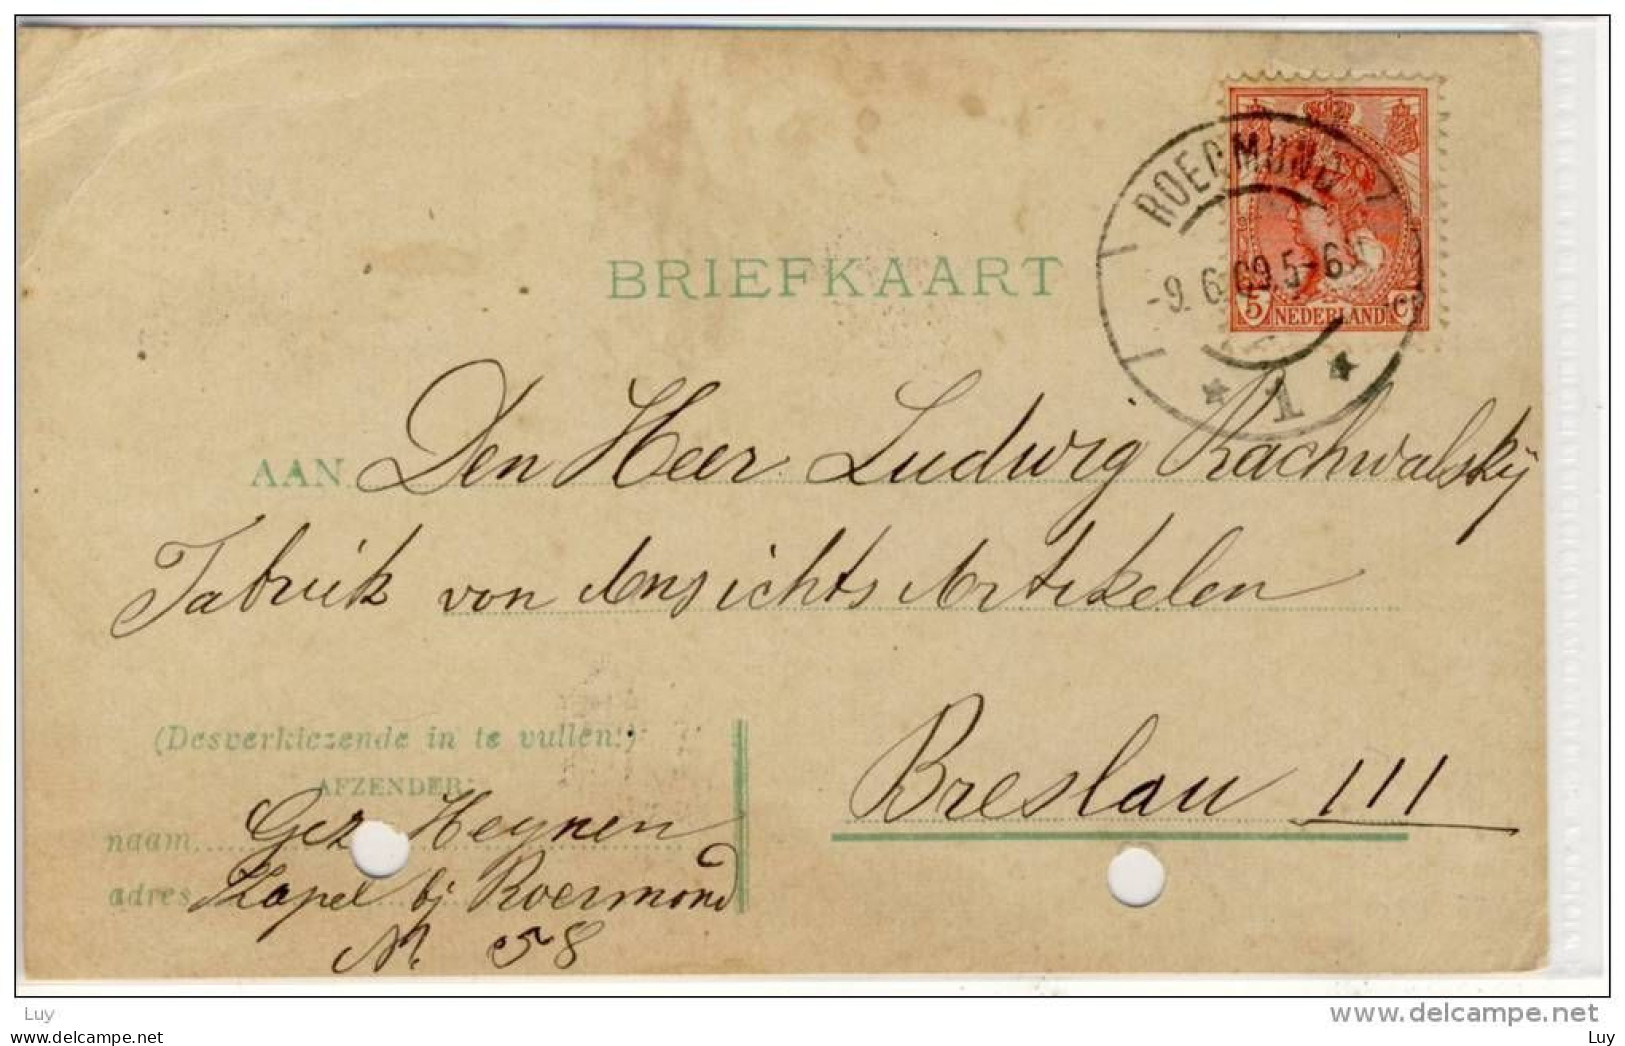 ROERMOND
-9. 6. 09. 5-6N
* 1 *
5 NEDERLAND CT
BRIEFKAART
AAN Den Heer Ludwig Rachwalsky
Fabrik von Ansichts Artikelen
Breslau III
(Desverkiezende in te vullen.)
AFZENDER:
naam Gez Heynen
adres Kapel bij Roermond
N. 58
Luy
www.delcampe.net
Luy